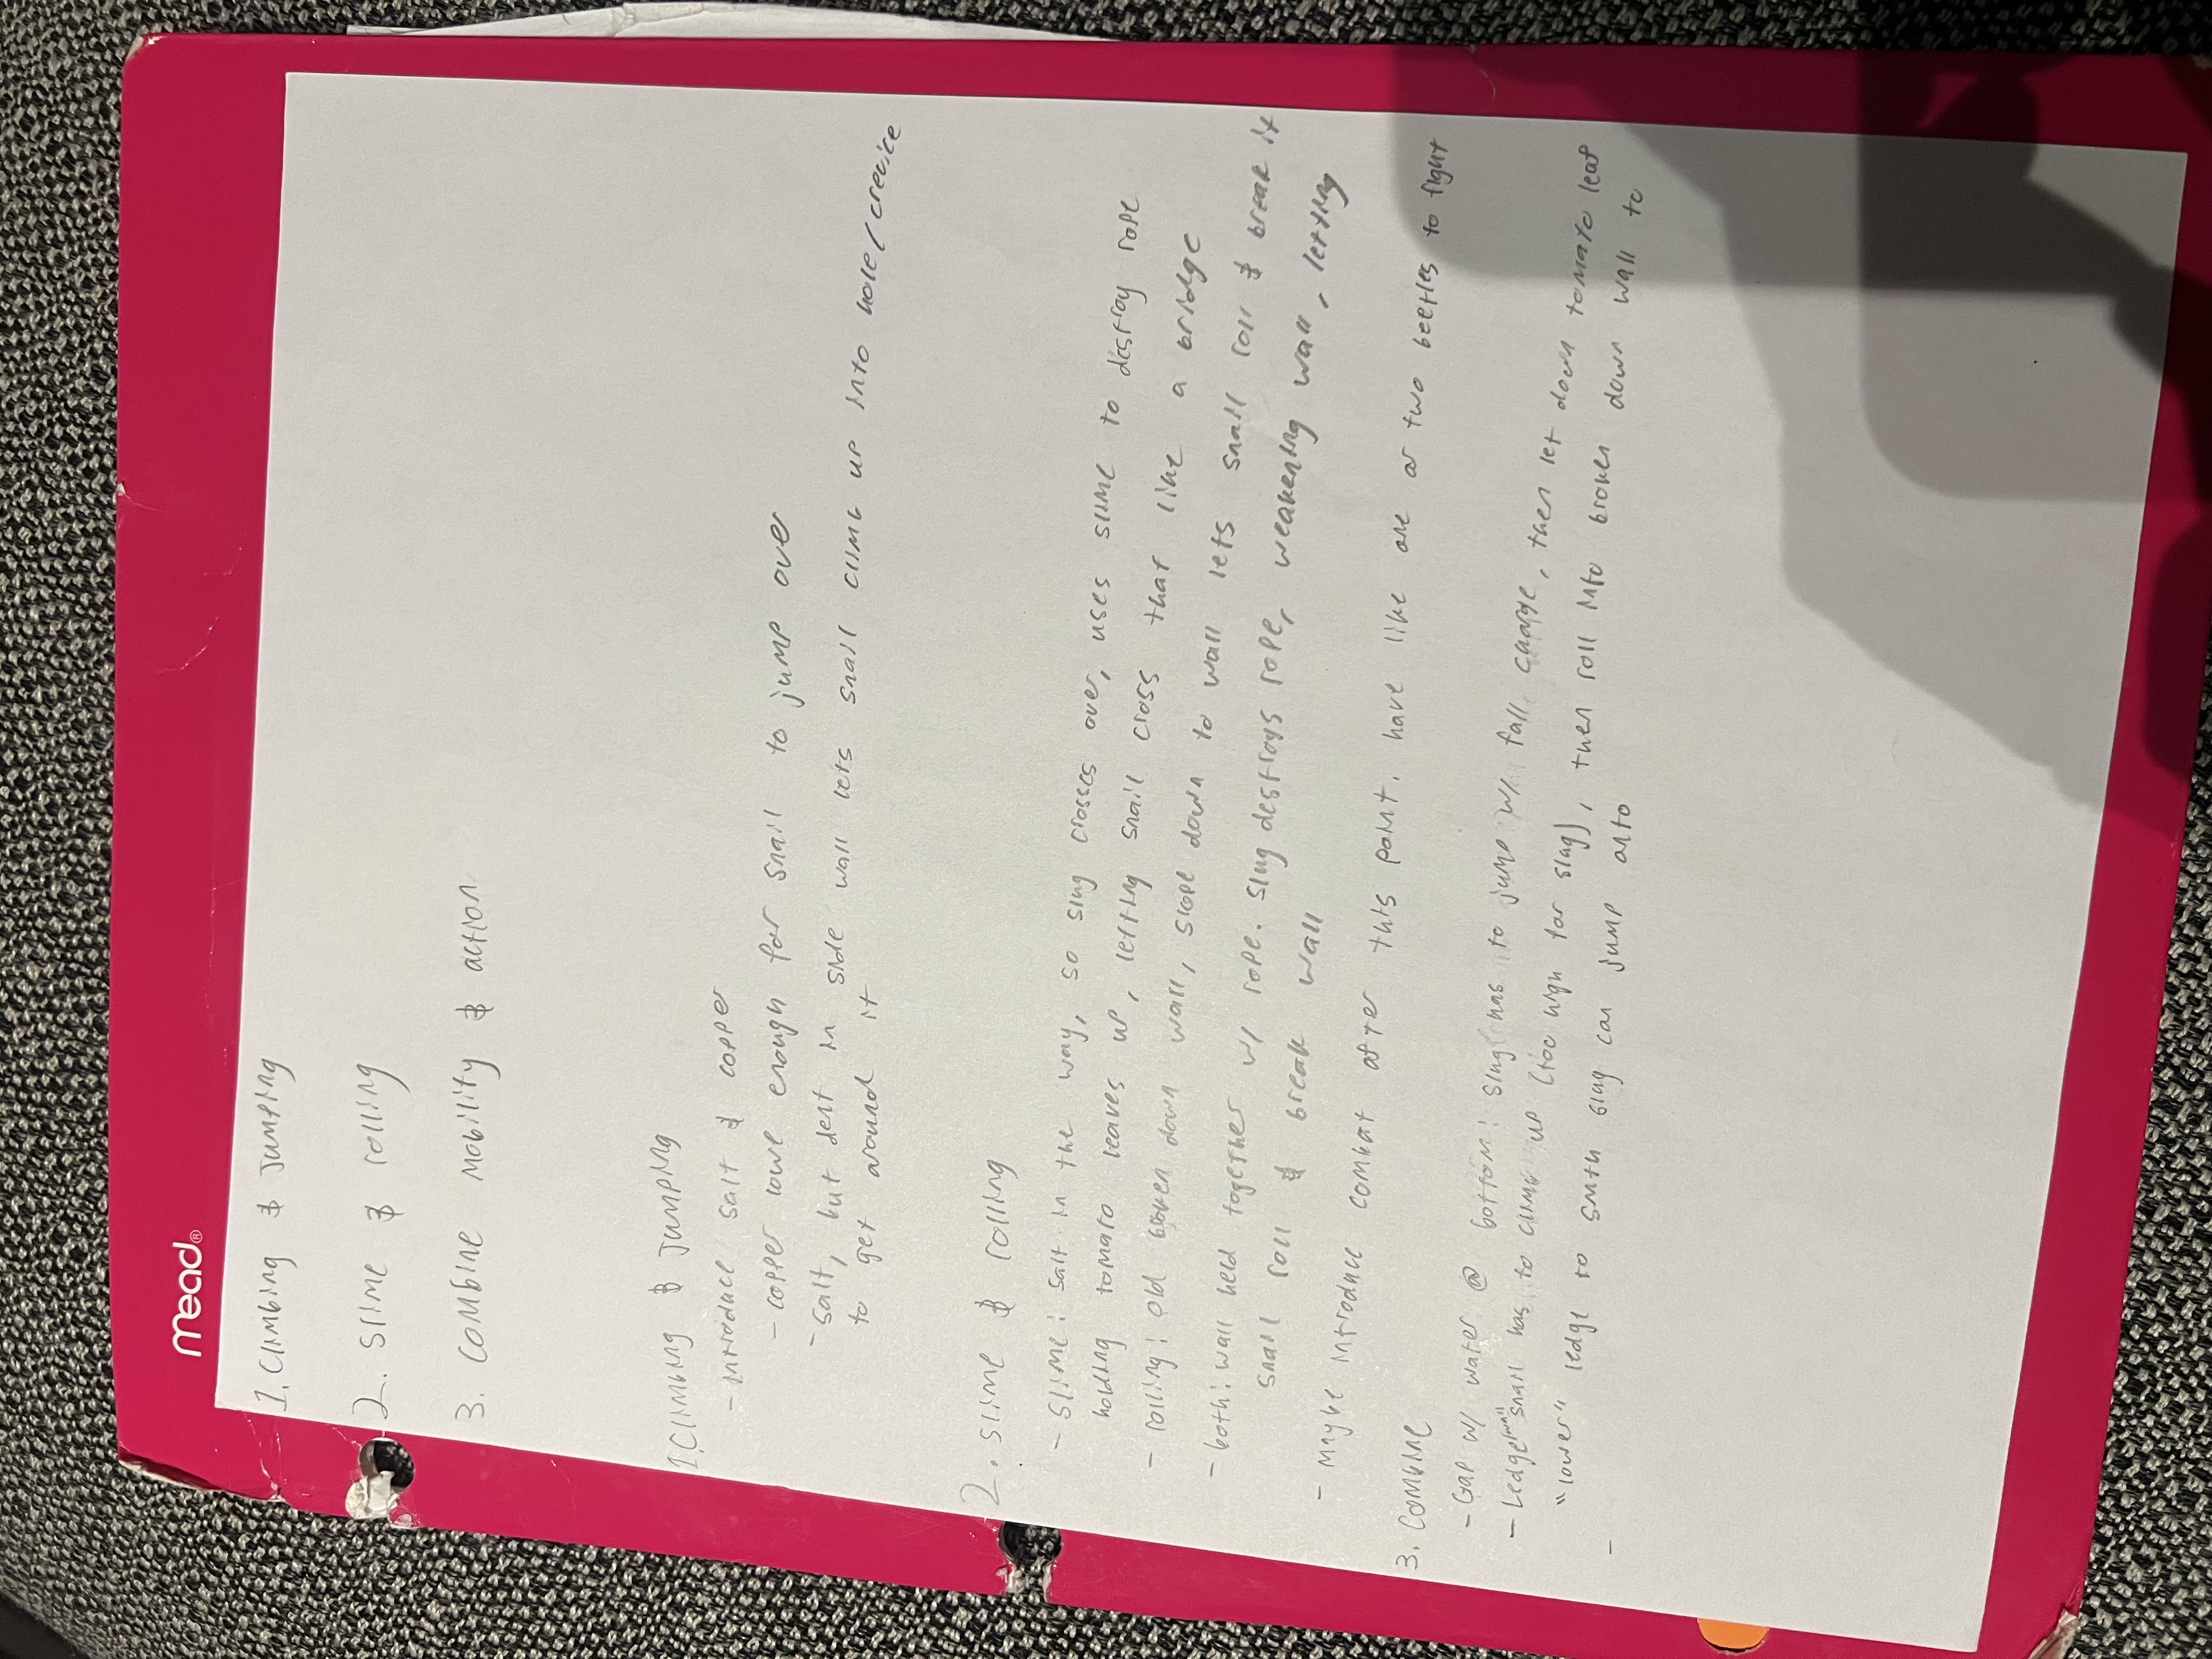 mead®
1. Climbing & Jumping
2. Slime & rolling
3. Combine mobility & action
1. Climbing & Jumping
- introduce salt & copper
- copper lowe enough for snail to jump over
- salt, but dent in side wall lets snail climb up into hole/crevice
to get around it
2. Slime & rolling
- Slime: salt in the way, so slug crosses over, uses slime to destroy rope
holding tomato leaves up, letting snail cross that like a bridge
- rolling: old broken down wall, slope down to wall lets snail roll & break it
- both: wall held together w/ rope. slug destroys rope, weakening wall, letting
snail roll & break wall
- Maybe introduce combat after this point. have like one or two beetles to fight
3. Combine
- Gap w/ water @ bottom: slug has to jump w/ fall charge, then let down tomato leaf
- Ledge/wall snail has to climb up (too high for slug), then roll into broken down wall to
"lower" ledge to smth slug can jump onto
-